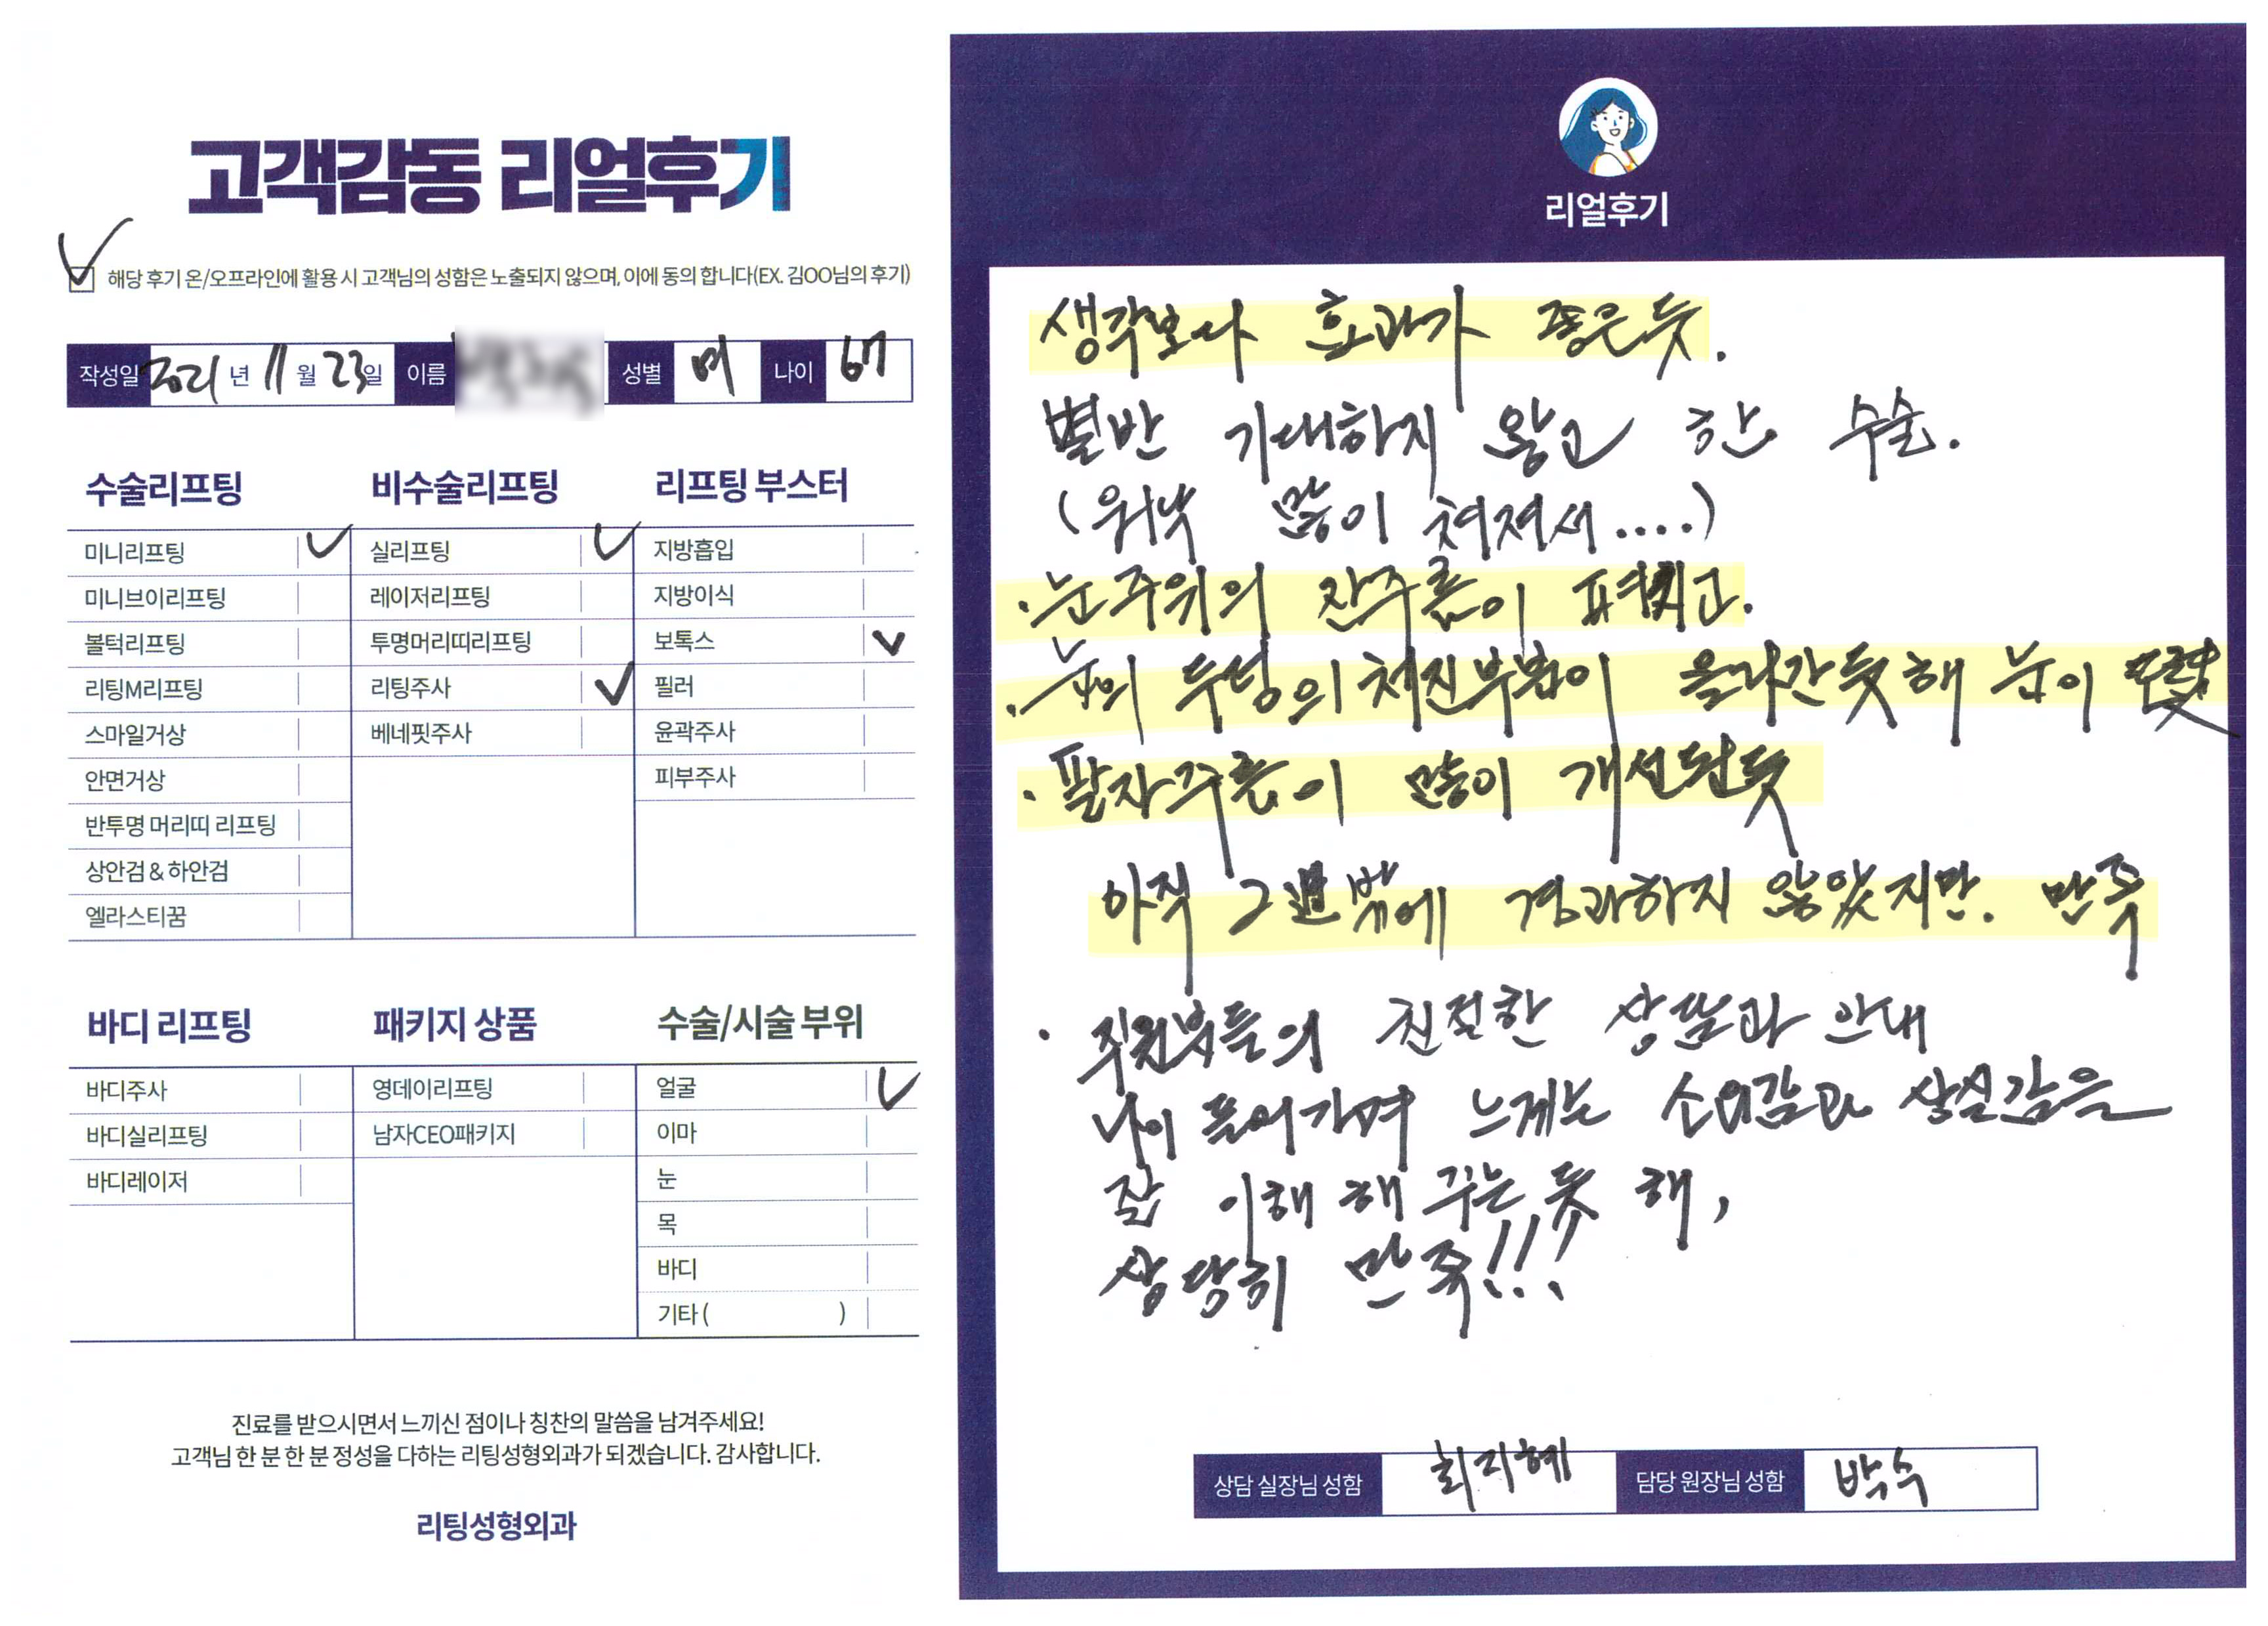 고객감동 리얼후기
해당 후기 온/오프라인에 활용 시 고객님의 성함은 노출되지 않으며, 이에 동의 합니다(EX. 김OO님의 후기)
작성일 2021년 11월 23일 이름 성별 여 나이 67
수술리프팅
미니리프팅
미니브이리프팅
볼턱리프팅
리팅M리프팅
스마일거상
안면거상
반투명 머리띠 리프팅
상안검 & 하안검
엘라스티꿈
비수술리프팅
실리프팅
레이저리프팅
투명머리띠리프팅
리팅주사
베네핏주사
리프팅 부스터
지방흡입
지방이식
보톡스
필러
윤곽주사
피부주사
바디 리프팅
바디주사
바디실리프팅
바디레이저
패키지 상품
영데이리프팅
남자CEO패키지
수술/시술 부위
얼굴
이마
눈
목
바디
기타 ( )
진료를 받으시면서 느끼신 점이나 칭찬의 말씀을 남겨주세요!
고객님 한 분 한 분 정성을 다하는 리팅성형외과가 되겠습니다. 감사합니다.
리팅성형외과
리얼후기
생각보다 효과가 좋은듯.
별반 기대하지 않고 한 수술.
(워낙 많이 쳐져서....)
·눈주위의 잔주름이 펴지고.
·눈의 두덩의 쳐진부분이 올라간듯해 눈이
·팔자주름이 많이 개선된듯
아직 2週밖에 경과하지 않았지만. 만족
·직원분들의 친절한 상담과 안내
나이 들어가며 느끼는 소외감과 상실감을
잘 이해 해 주는 듯 해,
상당히 만족!!!
상담 실장님 성함 최지혜 담당 원장님 성함 박수